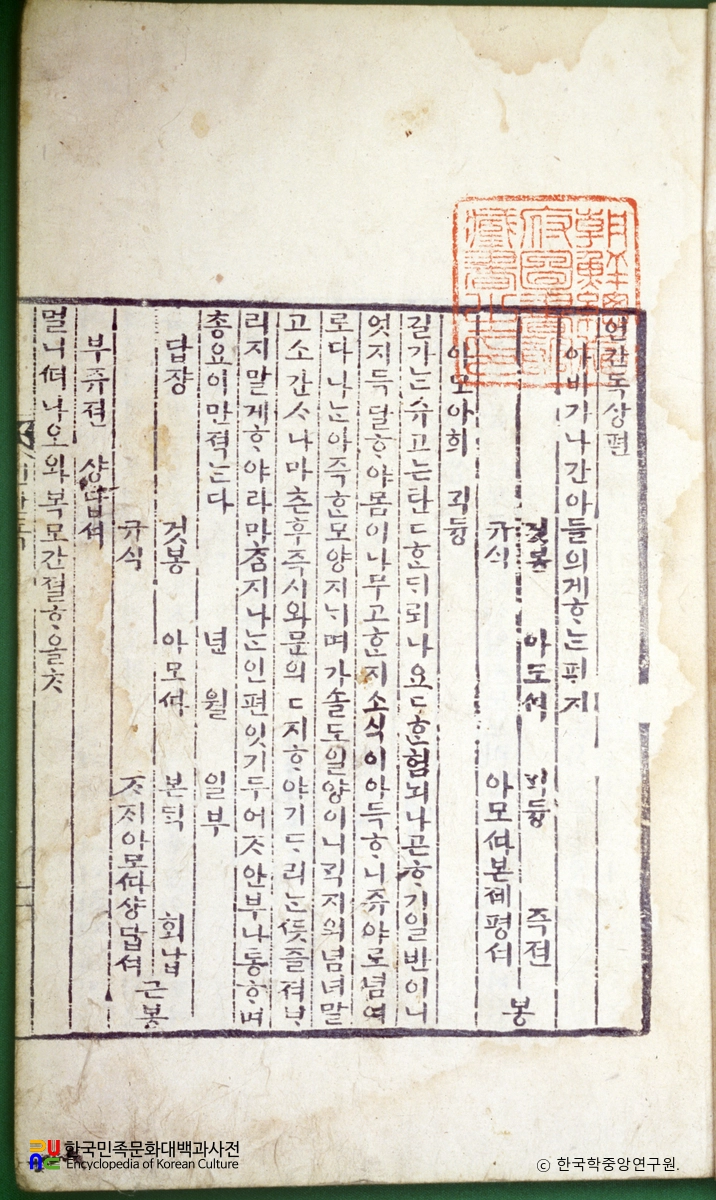 언간독상편
아비가나간아들의게ᄒᆞᄂᆞᆫ편지
것봉 아모셔 긔동 즉젼
규식 아모셔본졔평셔 봉
아모아희 긔동
길가ᄂᆞᆫ슈고ᄂᆞᆫ탄ᄃᆞᄒᆞᆫᄃᆡ뢰나요ᄃᆞᄒᆞᆫ험뇌나곤ᄒᆞ기일반이니
엇지득달ᄒᆞ야몸이나무고ᄒᆞᆫ지소식이아득ᄒᆞ니쥬야로념여
로다나ᄂᆞᆫ아즉ᄒᆞᆫ모양지ᄂᆡ며가솔도일양이니ᄀᆡᆨ지의념녀말
고소간ᄉᆞ나마촌후즉시와문의ᄃᆞ지ᄒᆞ야기ᄃᆞ리ᄂᆞᆫᄯᅳᆺ즐져ᄇᆞ
리지말게ᄒᆞ야라마ᄎᆞᆷ지나ᄂᆞᆫ인편잇기두어ᄌᆞ안부나통ᄒᆞ며
총요이만젹ᄂᆞᆫ다 년 월 일 부
답쟝 것봉 아모셔 본ᄃᆡᆨ 회납
규식 ᄌᆞ지아모셔샹답셔 근봉
부쥬젼 샹답셔
멀니ᄯᅥ나오와복모간졀ᄒᆞ올ᄎᆞ
한국민족문화대백과사전
Encyclopedia of Korean Culture
ⓒ 한국학중앙연구원.